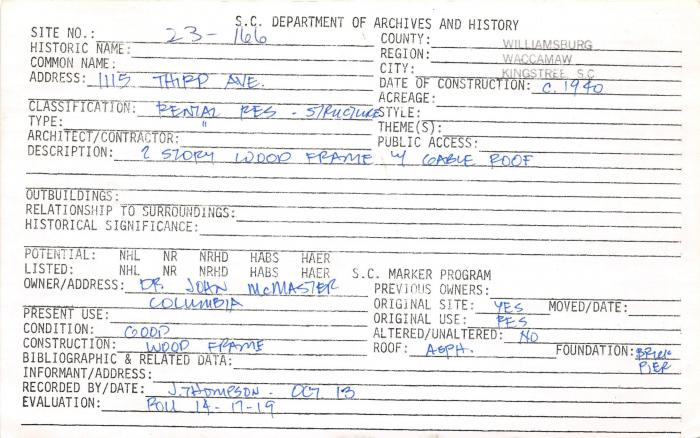 S.C. DEPARTMENT OF ARCHIVES AND HISTORY
SITE NO.: 23-166 COUNTY: WILLIAMSBURG
HISTORIC NAME: REGION: WACCAMAW
COMMON NAME: CITY: KINGSTREE, S.C
ADDRESS: 1115 THIRD AVE. DATE OF CONSTRUCTION: C. 1940
ACREAGE:
CLASSIFICATION: RENTAL RES - STRUCTURE STYLE:
TYPE: " THEME(S):
ARCHITECT/CONTRACTOR: PUBLIC ACCESS:
DESCRIPTION: 2 STORY WOOD FRAME W/ GABLE ROOF
OUTBUILDINGS:
RELATIONSHIP TO SURROUNDINGS:
HISTORICAL SIGNIFICANCE:
POTENTIAL: NHL NR NRHD HABS HAER
LISTED: NHL NR NRHD HABS HAER S.C. MARKER PROGRAM
OWNER/ADDRESS: DR. JOHN McMASTER PREVIOUS OWNERS:
COLUMBIA ORIGINAL SITE: YES MOVED/DATE:
PRESENT USE: ORIGINAL USE: RES
CONDITION: GOOD ALTERED/UNALTERED: NO
CONSTRUCTION: WOOD FRAME ROOF: ASPH. FOUNDATION: BRICK PIER
BIBLIOGRAPHIC & RELATED DATA:
INFORMANT/ADDRESS:
RECORDED BY/DATE: J. THOMPSON - OCT 13
EVALUATION: ROLL 14-17-19